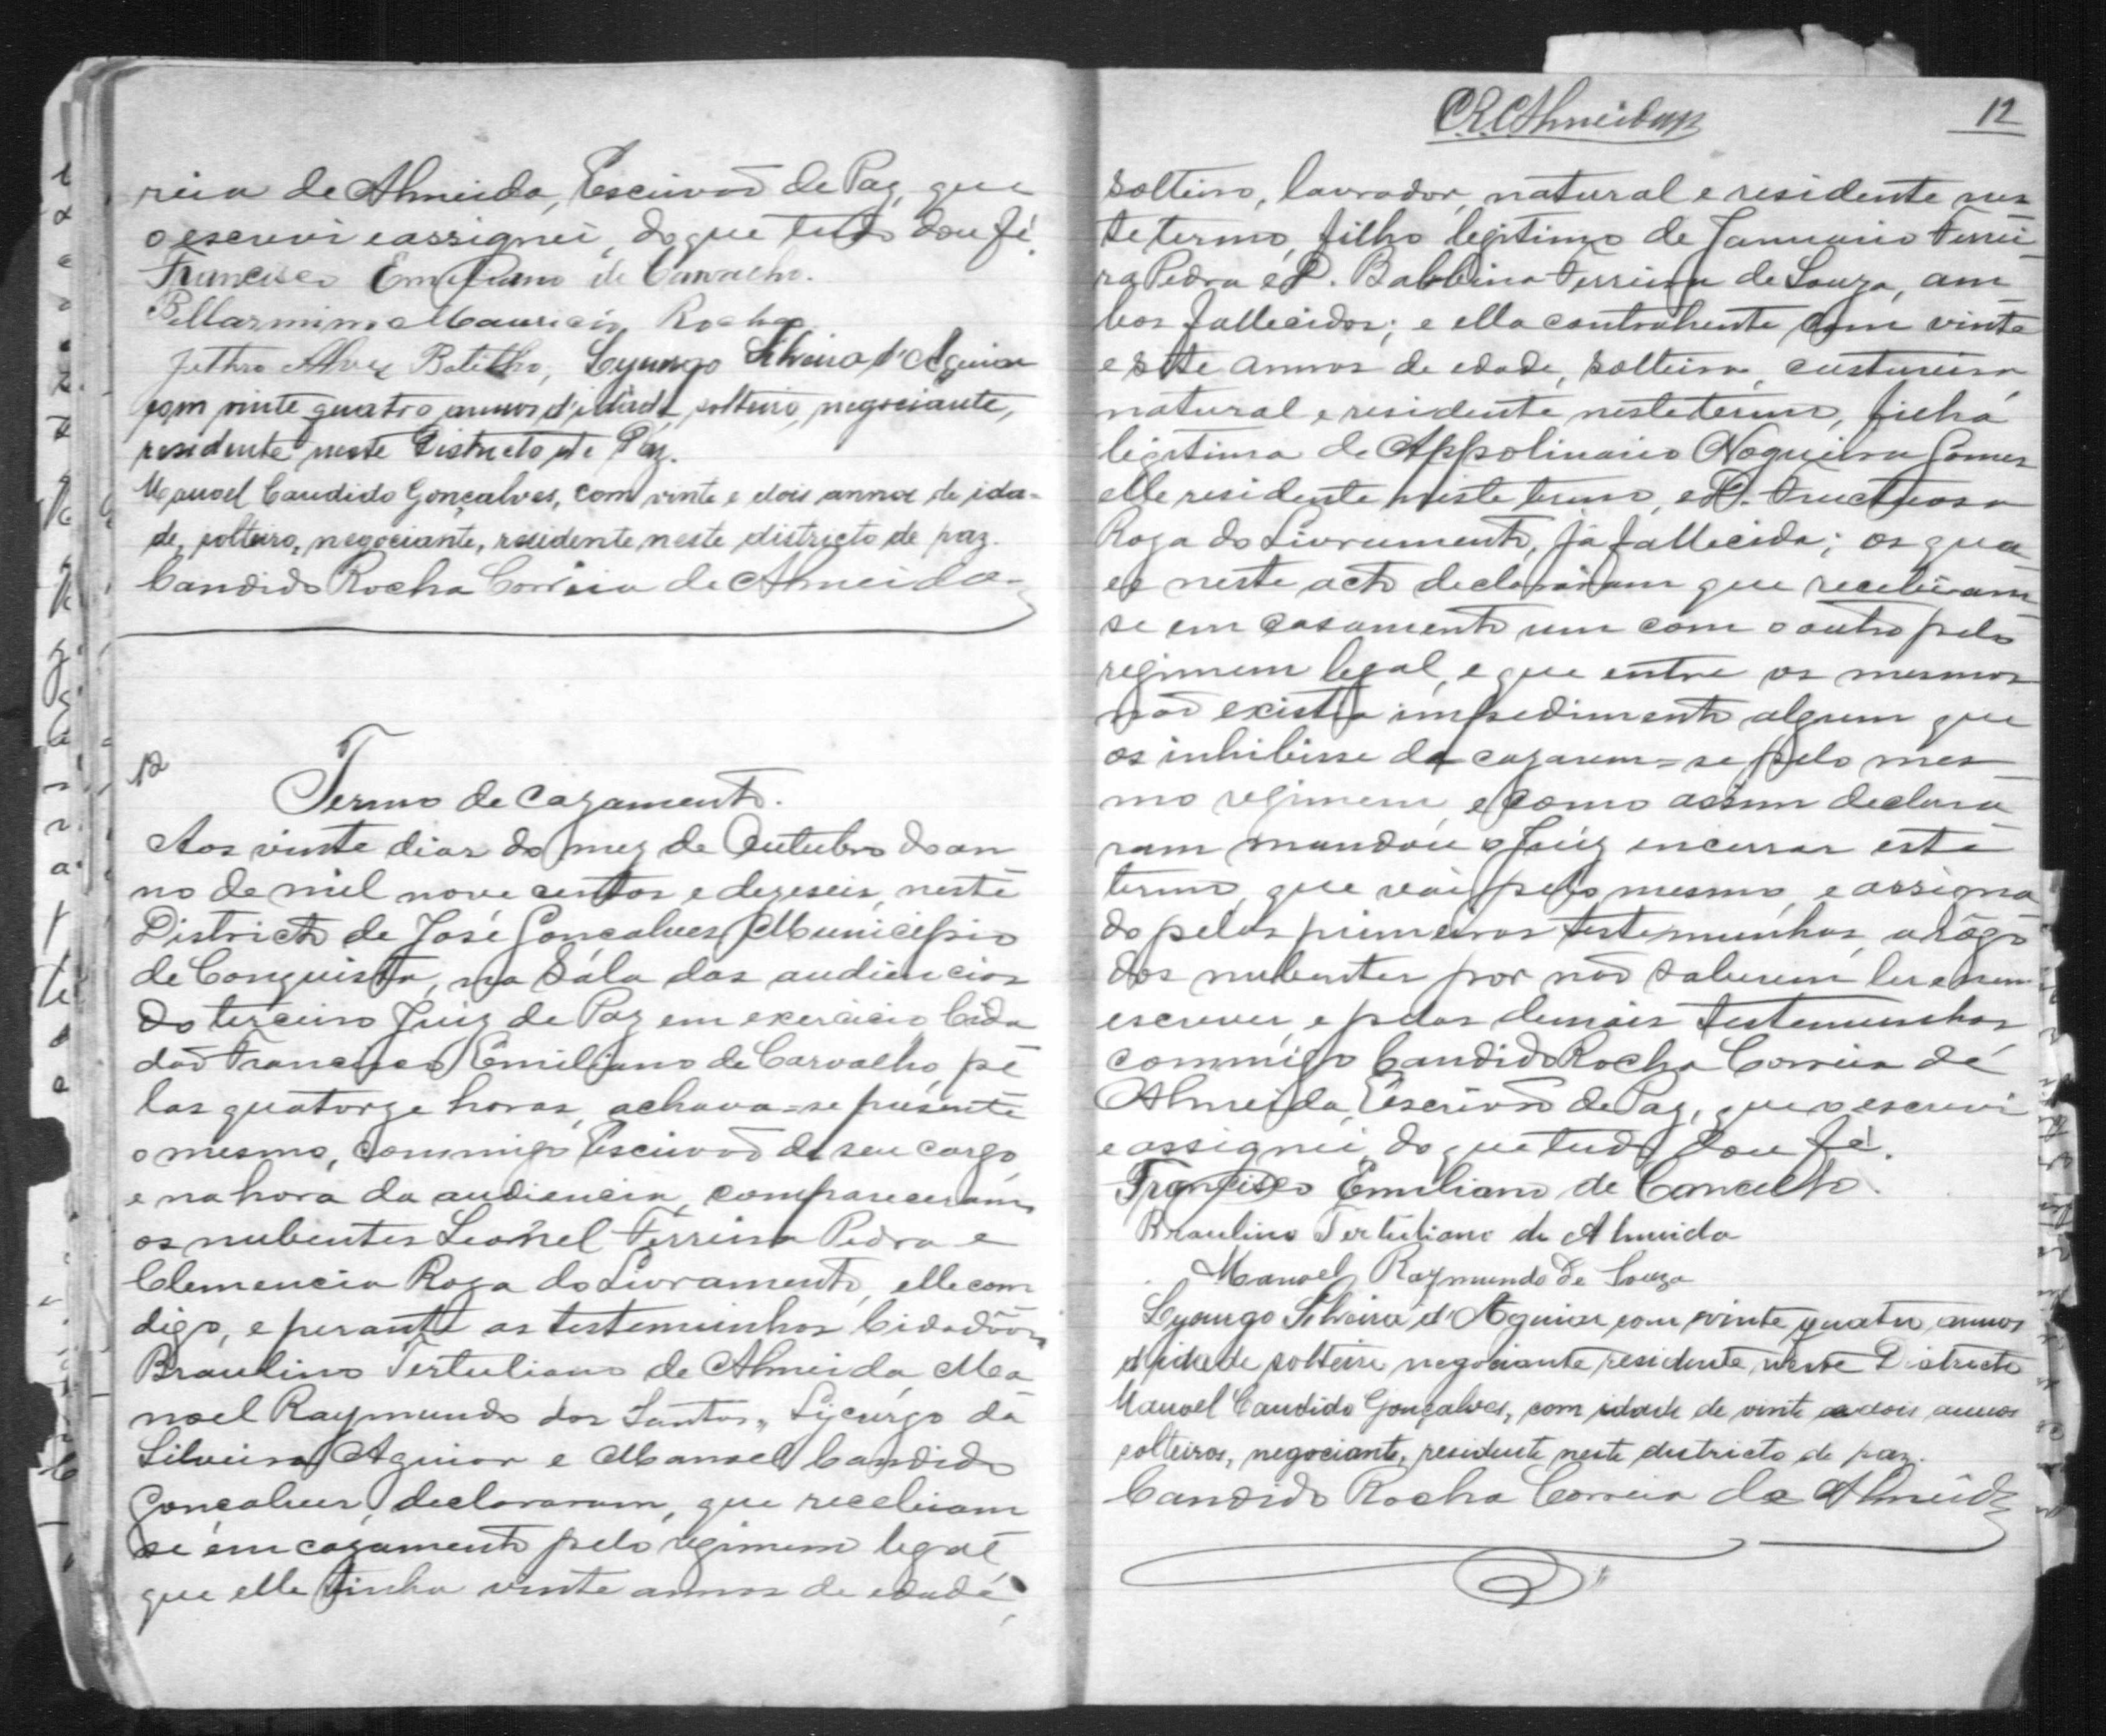 reia de Almeida, Escrivaõ de Paz, que
o escrevi e assignei, do que tudo dou fé.
Francisco Emiliano de Carvalho.
Bellarmino Mauricio Rocha
Jethro Alves Botelho, Lycurgo Silveira d'Aguiar
com vinte quatro annos d'idade, solteiro, negociante,
residente neste Districto de Paz.
Manoel Candido Gonçalves, com vinte e dois annos de ida-
de, solteiro, negociante, residente neste districto de paz.
Candido Rocha Correia de Almeida
12
Termo de Cazamento.
Aos vinte dias do mez de Outubro do an
no de mil nove centos e dezeseis, neste
Districto de José Gonçalves, Municipio
de Conquista, na Sála das audiencias
do terceiro Juiz de Paz em exercicio Cida
daõ Francisco Emiliano de Carvalho, pe
las quatorze horas, achava-se presente
o mesmo, commigo Escrivaõ de seu cargo,
e na hora da audiencia, compareceram
os nubentes Leonel Ferreira Pedra e
Clemencia Roza do Livramento, elle com
digo, e perante as testemunhas Cidadãos
Braulino Tertuliano de Almeida, Ma
noel Raymundo dos Santos, Lycurgo da
Silveira Aguiar e Manoel Candido
Gonçalves, declararam, que recebiam
se em cazamento pelo regimem legal
que elle tinha vinte annos de edade,
CRCAlmeida
12
solteiro, lavrador, natural e residente nes
te termo, filho legitimo de Januario Ferrei
ra Pedra e D. Balbina Ferreira de Souza, am
bos fallecidos; e ella contrahente com vinte
e sete annos de edade, solteira, custureira
natural e residente neste termo, filha
legitima de Appolinario Nogueira Gomes
elle residente neste termo, e D. Fructuosa
Roza do Livramento, já fallecida; os qua
es neste acto declararam que recebiam
se em casamento um com o outro pelo
regimem legal, e que entre os mesmos
não existia impedimento algum que
os inhibisse de cazarem-se pelo mes
mo regimem, e como assim declara
ram mandou o Juiz encerrar este
termo, que vai pelo mesmo, e assigna
do pelas primeiras testemunhas, a rôgo
dos nubentes por naõ saberem ler e nem
escrever, e pelas demais testemunhas
commigo Candido Rocha Correia de
Almeida, Escrivaõ de Paz, que o escrevi
e assignei, do que tudo dou fé.
Francisco Emiliano de Carvalho.
Braulino Tertuliano de Almeida
Manoel Raymundo de Souza
Lycurgo Silveira d'Aguiar com vinte quatro annos
d'idade solteiro negociante residente neste Districto
Manoel Candido Gonçalves, com idade de vinte e dois annos
solteiros, negociante, residente neste districto de paz.
Candido Rocha Correia de Almeida